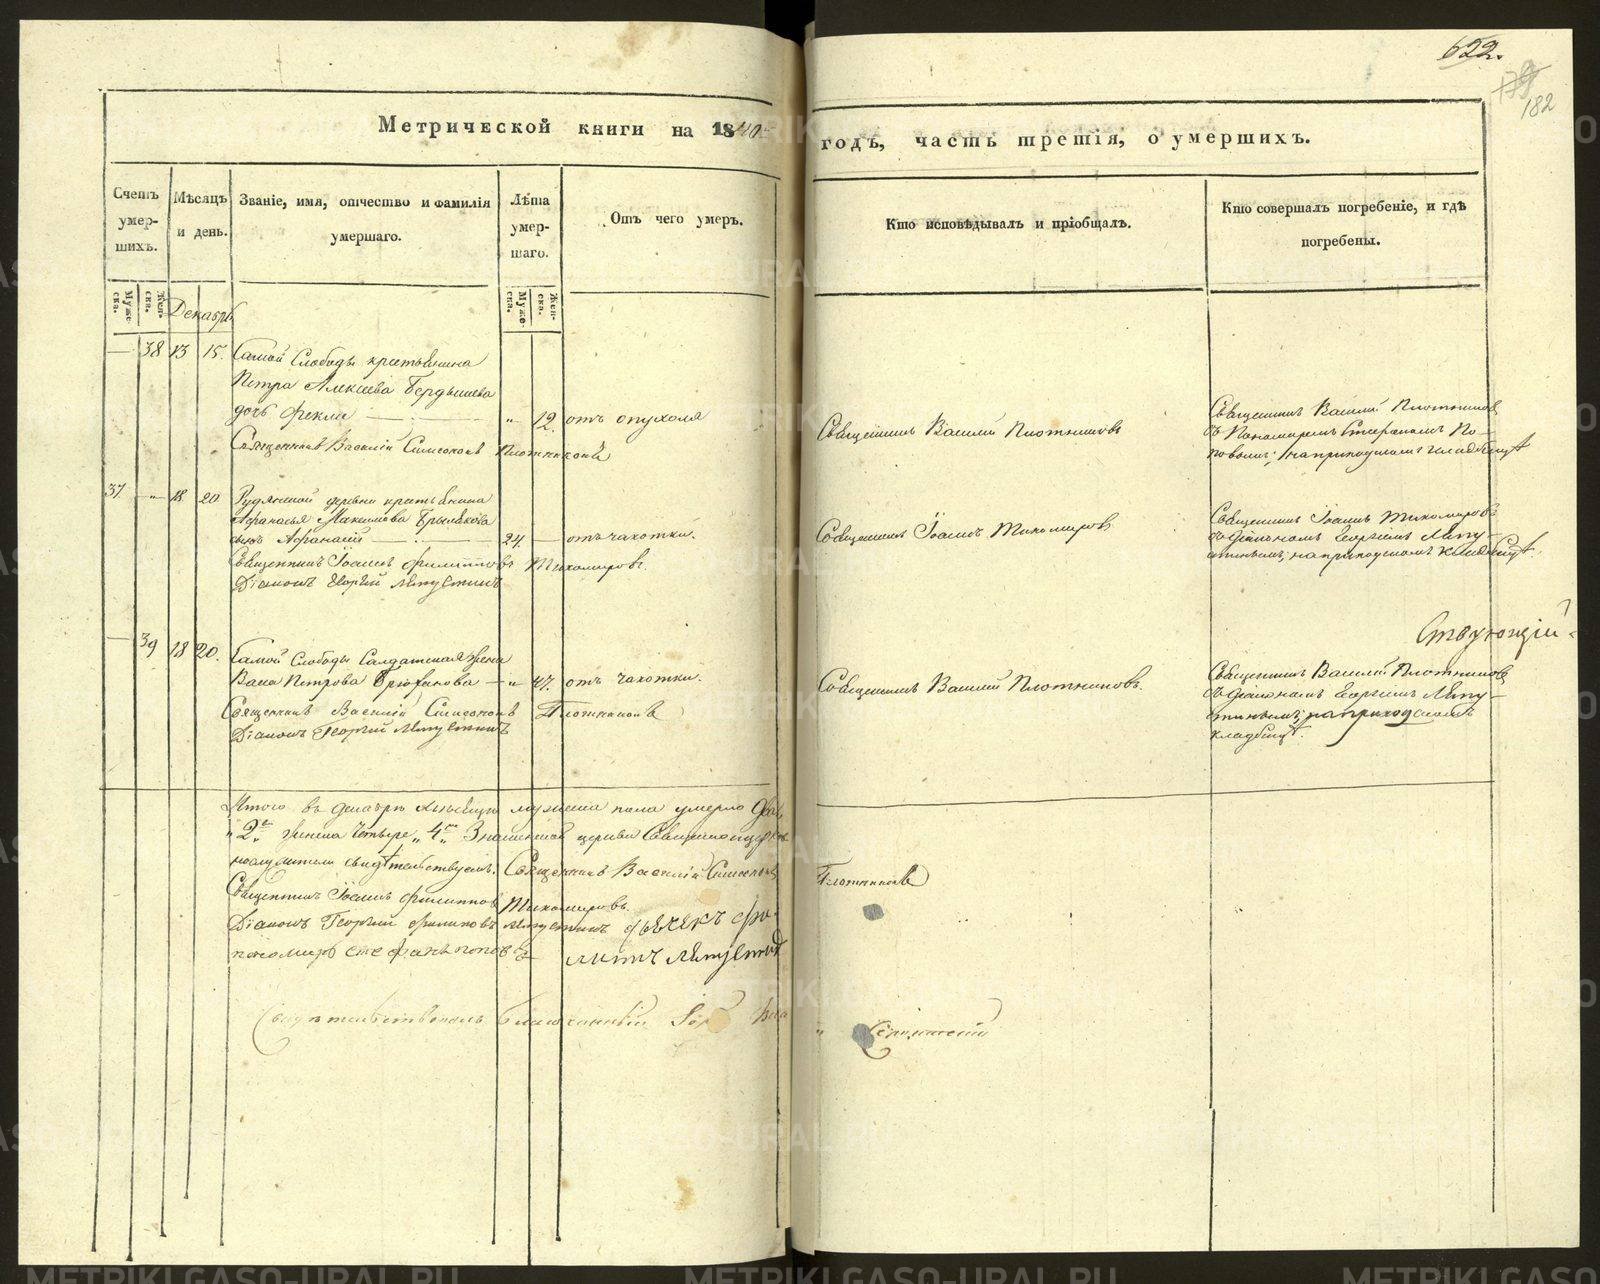 622.
179
182
Метрической книги на 1840
годъ, часть третія, о умершихъ.
Счетъ умер-шихъ.
Мѣсяцъ и день.
Званіе, имя, отчество и фамилія умершаго.
Лѣта умер-шаго.
Отъ чего умеръ.
Кто исповѣдывалъ и пріобщалъ.
Кто совершалъ погребеніе, и гдѣ погребены.
Муже-ска.
Жен-ска.
Декабрь
Муже-ска.
Жен-ска.
— 38 13 15. Самой Слободы крестьянина
Петра Алексѣева Бердышева
дочь Фекла — „ 12. отъ опухоля
Священникъ Василій Симеоновъ Плотниковъ
Священникъ Василій Плотниковъ
Священникъ Василій Плотниковъ
съ Пономаремъ Стефаномъ По-
повымъ; на приходскомъ кладбищѣ
37 „ 18 20 Рудянской деревни крестьянина
Афанасья Максимова Брылякова
сынъ Афанасій — 24. — отъ чахотки.
Священникъ Іоаннъ Филипповъ Тихомировъ.
Діаконъ Георгій Ляпустинъ
Священникъ Іоаннъ Тихомировъ
Священникъ Іоаннъ Тихомировъ
съ діакономъ Георгіемъ Ляпу-
стинымъ; на приходскомъ кладбищѣ.
— 39 18 20. Самой Слободы Солдатская жена
Васа Петрова — „ 47. отъ чахотки.
Священникъ Василій Симеоновъ Плотниковъ
Діаконъ Георгій Ляпустинъ
Священникъ Василій Плотниковъ.
ствующій
Священникъ Василій Плотниковъ
съ діакономъ Георгіемъ Ляпу-
стинымъ; на приходскомъ
кладбищѣ.
Итого въ декабрѣ мѣсяцѣ мужеска пола умерло два,
„2„ женска четыре „4„ Знаменской церкви Священноцерков-
нослужители свидѣтельствуемъ: Священникъ Василій Симеоновъ
Плотниковъ
Священникъ Іоаннъ Филипповъ Тихомировъ.
Діаконъ Георгій Филиповъ Ляпустинъ дьячекъ
пономарь Стефанъ Поповъ Ляпустинъ
Свидѣтельствовалъ Благочинный